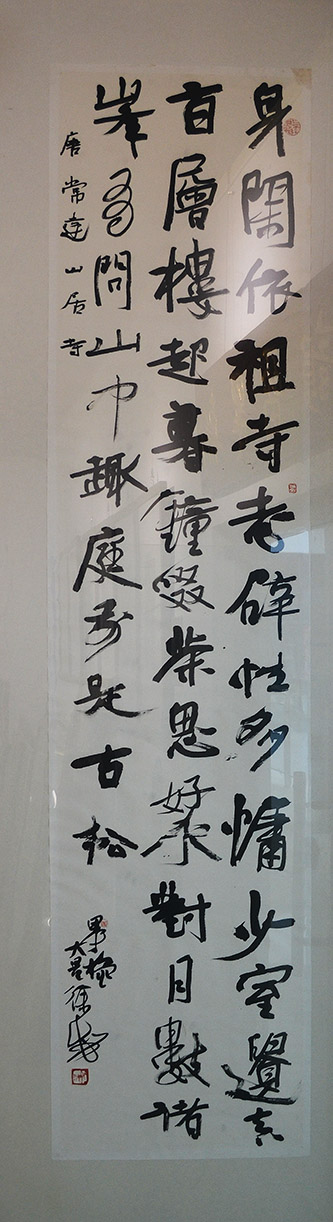 身閑依祖寺志僻性多慵少室遺真
旨層樓起暮鐘啜茶思好水對月數諸
峯有問山中趣庭前是古松
唐常達山居寺